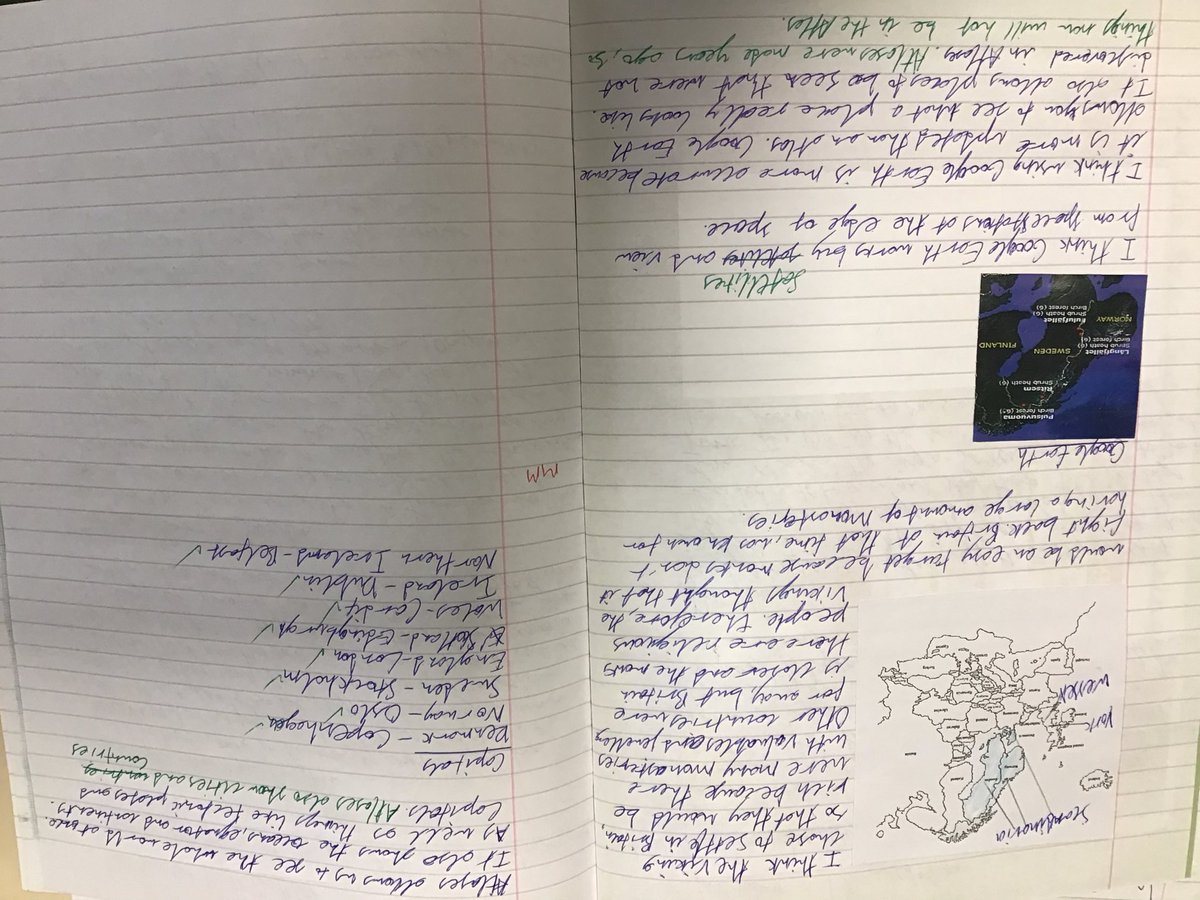 I think the Viking
chose to settle in Britain,
so that they would be
rich because there
were many monasteries
with valuables and jewellery
Other countries were
far away, but Britain
is closer and the monks
there are religious
people. Therefore, the
Vikings thought that it
would be an easy target because monks don't
fight back. Britain at that time, was known for
having a large amount of Monasteries.
Scandinavia
York
Wessex
Google Earth
Pulsuvuoma
Birch forest (6)
Ritsem
Shrub heath (6)
SWEDEN
FINLAND
Långfjället
Shrub heath (6)
Birch forest (6)
NORWAY
Fulufjället
Shrub heath (6)
Birch forest (6)
Satellites
I think Google Earth works by and view
from space stations at the edge of space.
I think using Google Earth is more accurate because
it is more updated than an atlas. Google Earth
allows you to see what a place really looks like.
It also allows places to be seen that were not
discovered in Atlases. Atlases were made years ago, so
things now will not be in the Atlas.
Atlases allows us to see the whole world at once.
It also shows the oceans, equator and continents.
As well as things like tectonic plates and
Capitals Atlases also show cities and
countries
Capitals
Denmark - Copenhagen ✓
Norway - Oslo ✓
Sweden - Stockholm ✓
England - London ✓
Scotland - Edinburgh ✓
Wales - Cardiff ✓
Ireland - Dublin ✓
Northern Ireland - Belfast ✓
MM